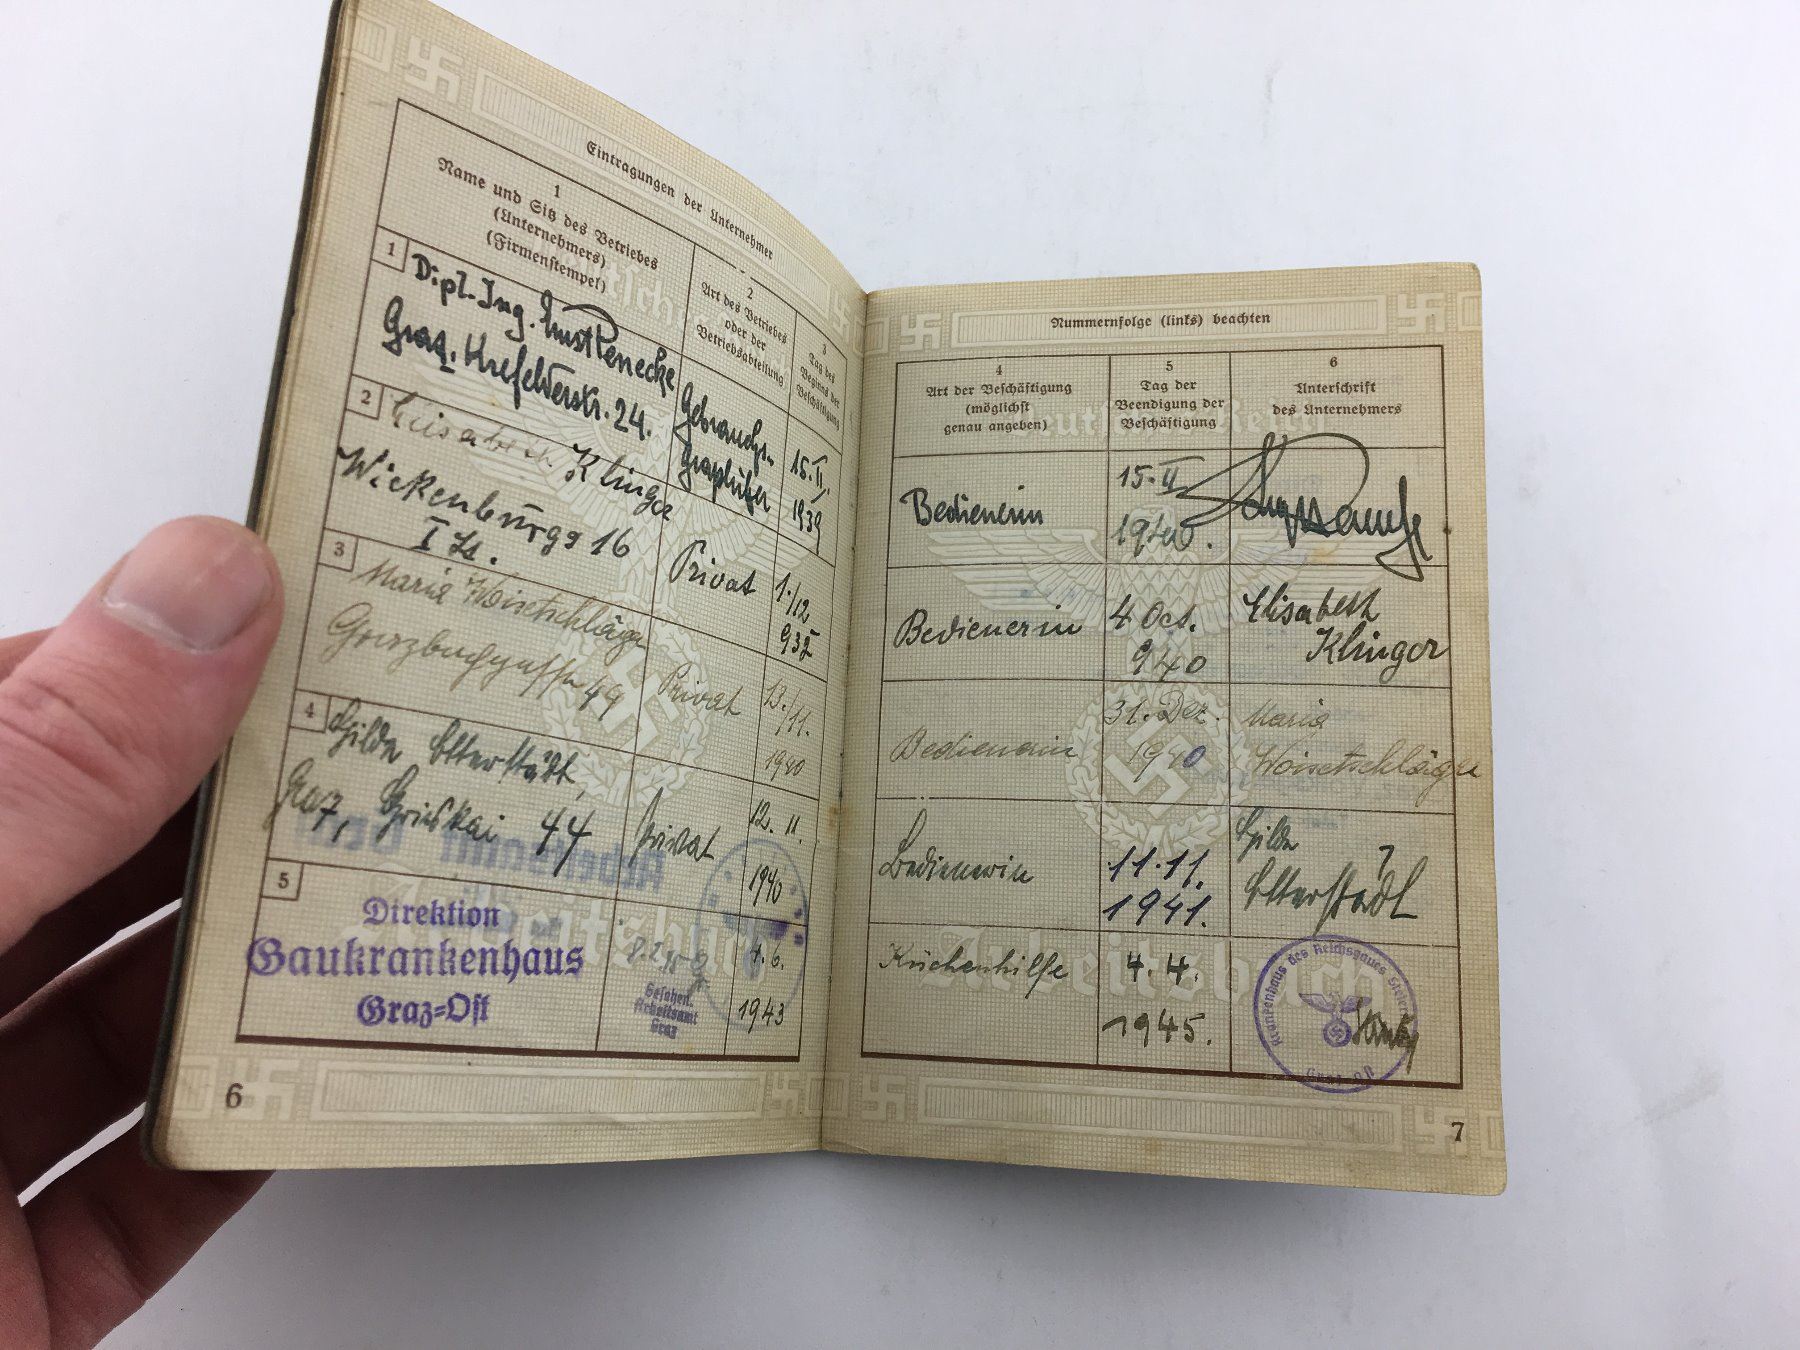 Eintragungen der Unternehmer
1
Name und Sitz des Betriebes
(Unternehmers)
(Firmenstempel)
2
Art des Betriebes
oder der
Betriebsabteilung
3
Tag des
Beginns der
Beschäftigung
1
Dipl.-Ing. Ernst
Graz, Krefelderstr. 24.
Gebrauchs-
graphiker
15. II.
1939
2
Elisabeth Klinger
Wickenburgg 16
Privat
1./12
3
Maria Woisetschläger
49
Privat
13./11.
1940
4
Hilda Etterstädt,
Graz, Grieskai 44
Privat
12. 11.
1940
5
Direktion
Gaukrankenhaus
Graz=Ost
Gesehen.
Arbeitsamt
Graz
1943
6
Nummernfolge (links) beachten
4
Art der Beschäftigung
(möglichst
genau angeben)
5
Tag der
Beendigung der
Beschäftigung
6
Unterschrift
des Unternehmers
Bedienerin
15. II.
1940.
Bedienerin
4 Oct.
940
Elisabeth
Klinger
Bedienerin
31. Dez.
1940
Maria
Woisetschläger
Bedienerin
11. 11.
1941.
Hilda
Etterstädt
Küchenhilfe
4. 4.
1945.
Krankenhaus des Reichsgaues
Graz-Ost
Deutsches Reich
Arbeitsbuch
7